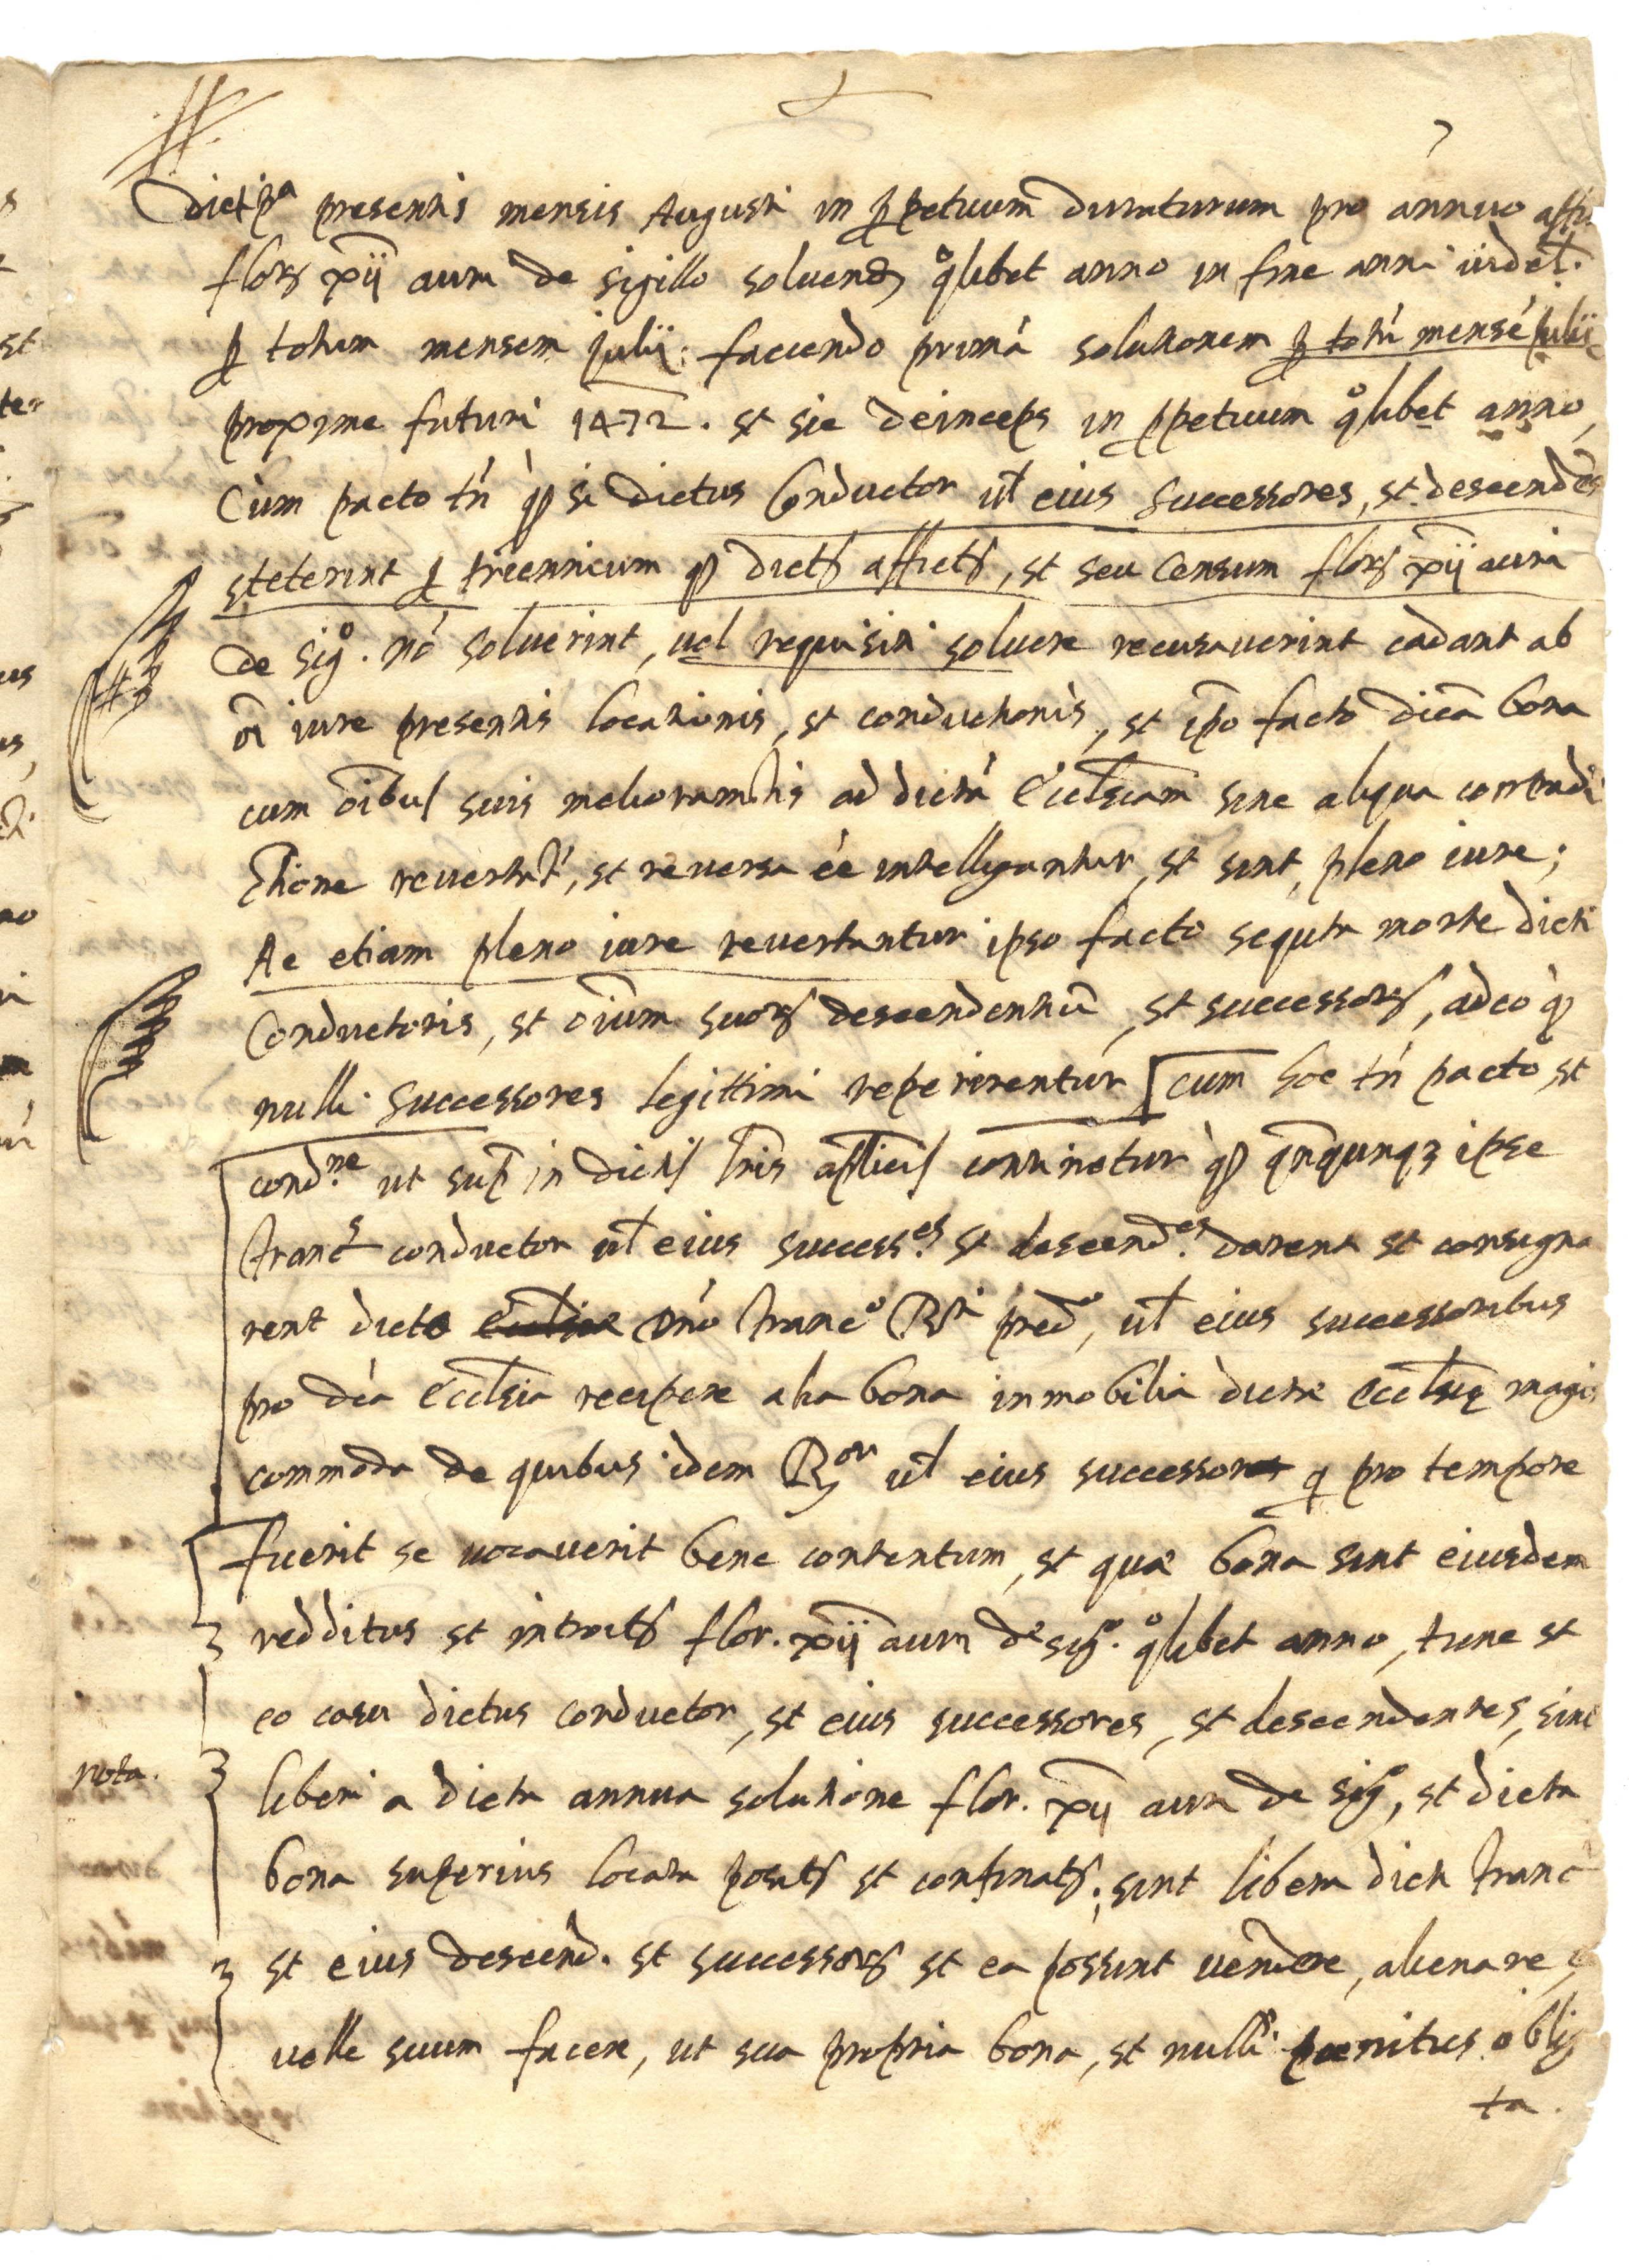 7
presentis mensis Augusti in ꝑpetuum duraturum pro annuo affi
florꝝ xii auri de sigillo soluendꝝ qͦlibet anno in fine anni
ꝑ totum mensem Julii: faciendo primá solutionem ꝑ totú mensé Julii
proxime futuri 1472. et sic deinceps in ꝑpetuum qͦlibet anno,
Cum pacto tń ꝙ si dictus Conductor ul̃ eius Successores, et descendẽs
steterint ꝑ triennium ꝙ dictꝭ affictꝭ, et seu Censum florꝝ xii auri
de sigͦ. nó soluerint, vel requisiti soluere recusaverint cadant ab
oĩ iure presentis locationis, et conductionis, et ip̃o facto dicã bona
cum oĩbus suis melioramẽtis ad dictá Eccl̃siam sine aliqua contradi
ctione revertãt, et reversa éé intelligantur, et sint, pleno iure;
Ac etiam pleno iure revertantur ipso facto sequta morte dicti
Conductoris, et oĩum suorꝝ descendentiũ, et successorꝝ, adeo ꝙ
nulli successores legittimi reperirentur [cum hoc tń pacto et
condⁿᵉ ut supᵃ in dictis l̃ris ap̃licis continetur ꝙ qñqunqꝫ ipse
Francˢ conductor ul̃ eius success.ᵉˢ et descend.ᵉˢ darent et consigna
rent dicto Dńo Francͦ Rʳⁱ predͦ, ul̃ eius successoribus
pro dcá Eccl̃sia recipere alia bona inmobilia dictæ eccl̃się magis
commoda de quibus idem Rᵒʳ ul̃ eius successor q̃ pro tempore
fuerit se vocaverit bene contentum, et quæ bona sint eiusdem
redditus et introitꝭ flor. xii auri de sigͦ. qͦlibet anno, tunc et
eo casu dictus conductor, et eius successores, et descendentes, sint
nota. liberi a dicta annua solutione flor. xii auri de sigͦ, et dicta
bona superius locata positꝭ et confinatꝭ; sint libera dicti Francⁱ
et eius descend. et successorꝝ et ea possint vendere, alienare,
velle suum facere, ut sua propria bona, et nulli poenitus oblig
ta.